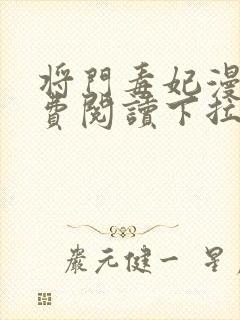 將門毒妃漫
費閱讀下拉
嚴元健一 星